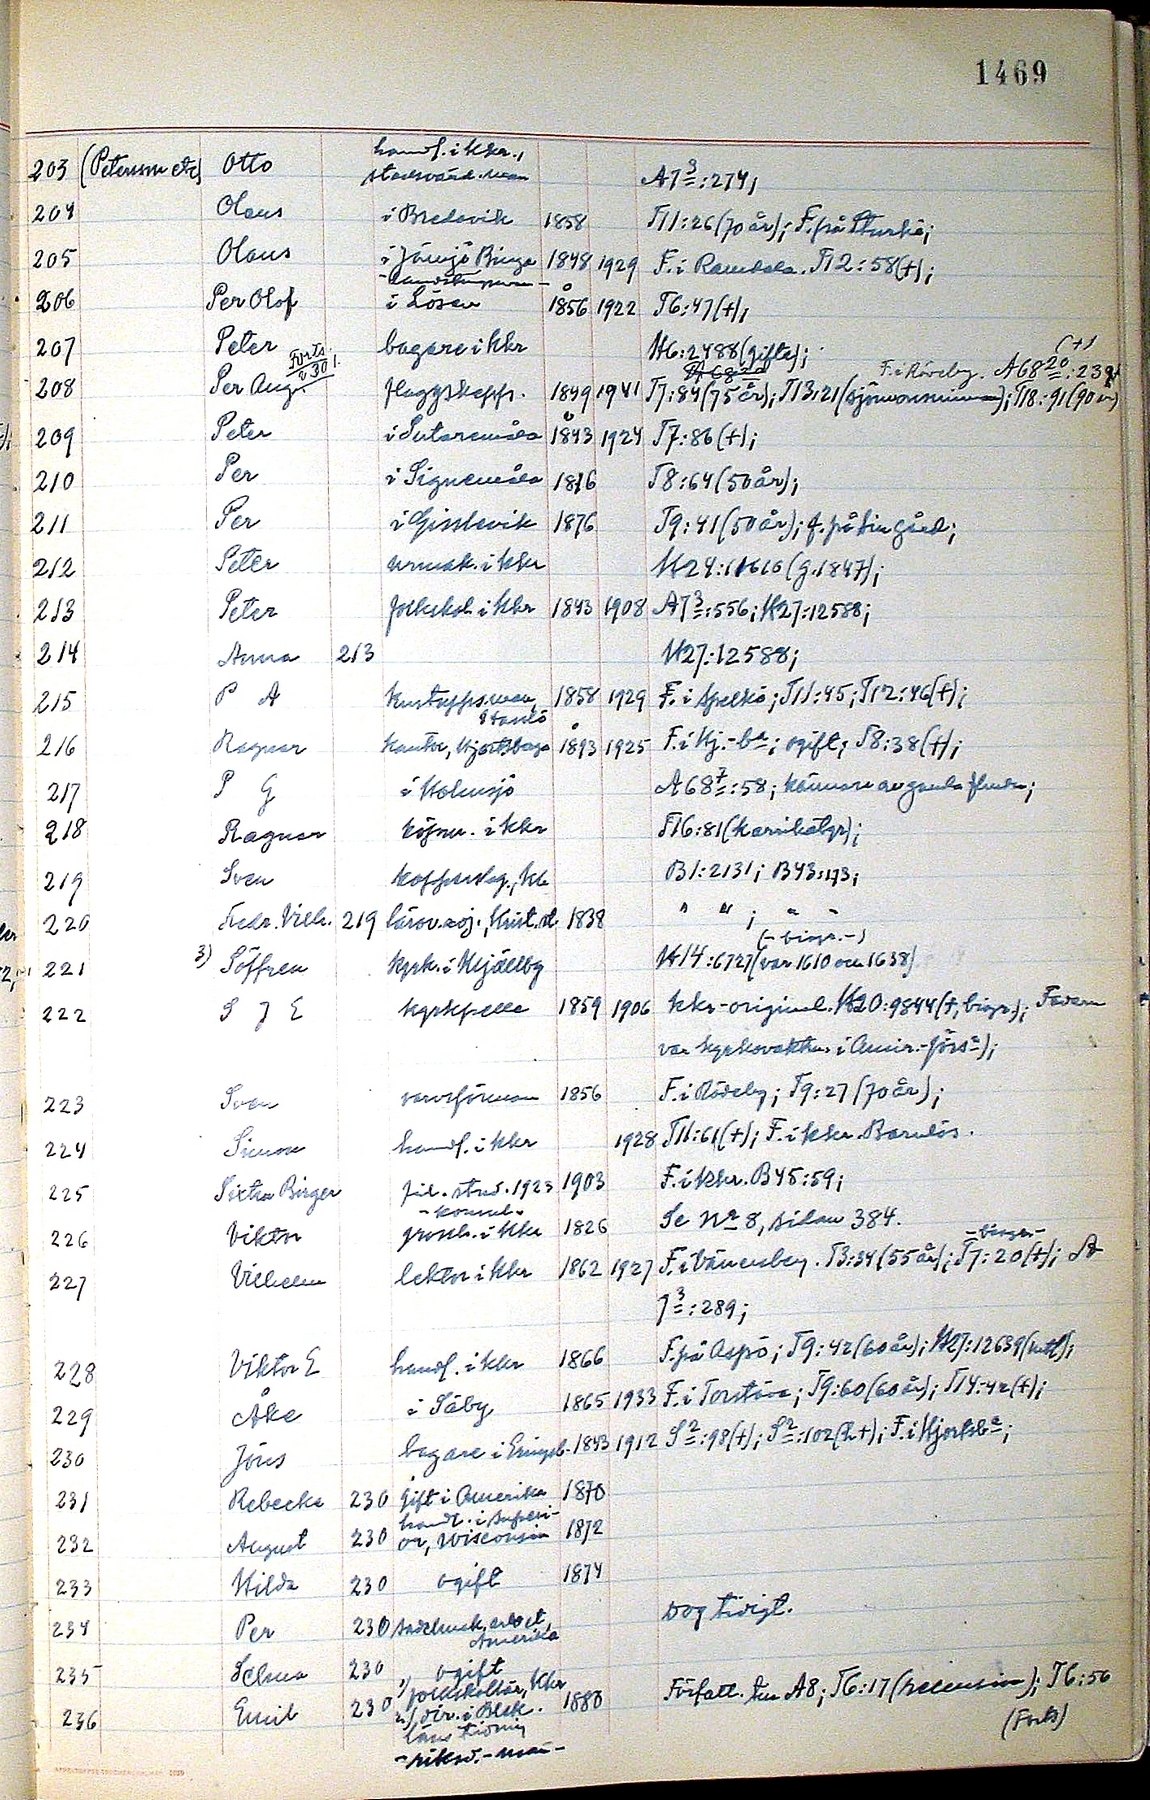 1469
203 (Peterson etc) Otto handl. i Kkr., stadsvärd. man A7³:274;
204 Olaus i Bredavik 1858 T11:26 (70 år); F. på Sturkö;
205 Olaus i Jämjö Binga 1848 1929 F. i Ramdala. T12:58(+);
-landstingsman-
206 Per Olof i Lösen 1856 1922 T6:47(+);
207 Peter bagare i Kkr K6:2488 (gifte); (+)
Forts. s. 301. F. i Rödeby. A68²⁰:239
208 Per Aug. flaggskepps. 1849 1941 T7:84 (75 år); T13:21 T18:91 (90 år)
209 Peter i Sutaremåla 1843 1924 T7:86(+);
210 Per i Signemåla 1876 T8:64 (50 år);
211 Per i Gisslevik 1876 T9:41 (50 år); f. på sin gård;
212 Peter urmak. i Kkr K24:11616 (g. 1847);
213 Peter folkskol. i Kkr 1843 1908 A7³:556; K27:12588;
214 Anna 213 K27:12588;
215 P A Kustuppsman, 1858 1929 F. i Spelskö; T11:45; T12:46(+);
Stanlö
216 Ragnar Kantor, Hjortsberga 1893 1925 F. i Hj.-bª; ogift; T8:38(+);
217 P G i Holmsjö A68⁷:58; kännare av gamla
218 Ragnar köpm. i Kkr T16:81 (karrikatyr);
219 Sven kopparslag., Kkr B1:2131; B43:173;
220 Fredr. Vilh. 219 lärov.adj., Krist.st. 1838 " " ; " "
(-biogr.-)
3) 221 Söffren kyrkh. i Mjällby K14:6727 (var 1610 och 1638)
222 S J E 1859 1906 Kkr-original. K20:9844 (+, biogr.); Fadern
var kyrkovaktm. i Amir.-försª);
223 Sven varvsförman 1856 F. i Rödeby; T9:27 (70 år);
224 Simon handl. i Kkr 1928 T11:61(+); F. i Kkr. Barnlös.
225 Sixten Birger fil. stud. 1923 1903 F. i Kkr. B45:59;
-konsul-
226 Viktor grossh. i Kkr 1826 Se Nº 8, sidan 384.
-biogr-
227 Vilhelm lektor i Kkr 1862 1927 F. i Vänersborg. T3:34 (55 år); T7:20(+); A
7³:289;
228 Viktor E handl. i Kkr 1866 F. på Aspö; T9:42 (60 år); K27:12639
229 Åke i Säby 1865 1933 F. i Torstäva; T9:60 (60 år); T14:42(+);
230 Jöns bagare i Eringsb. 1843 1912 S²:98(+); S²:102(+); F. i Hjortsbª;
231 Rebecka 230 gift i Amerika 1870
232 August 230 handl. i Superior, Wisconsin 1872
233 Hilda 230 ogift 1874
234 Per 230 sadelmak. arbet, Amerika Dog tidigt.
235 Selma 230 ogift
236 Emil 230 1) folkskollär., Kkr 1880 Författ. A8; T6:17 (recension); T6:56
2) dir. i Blek. läns tidning (Forts)
-riksd.-man-